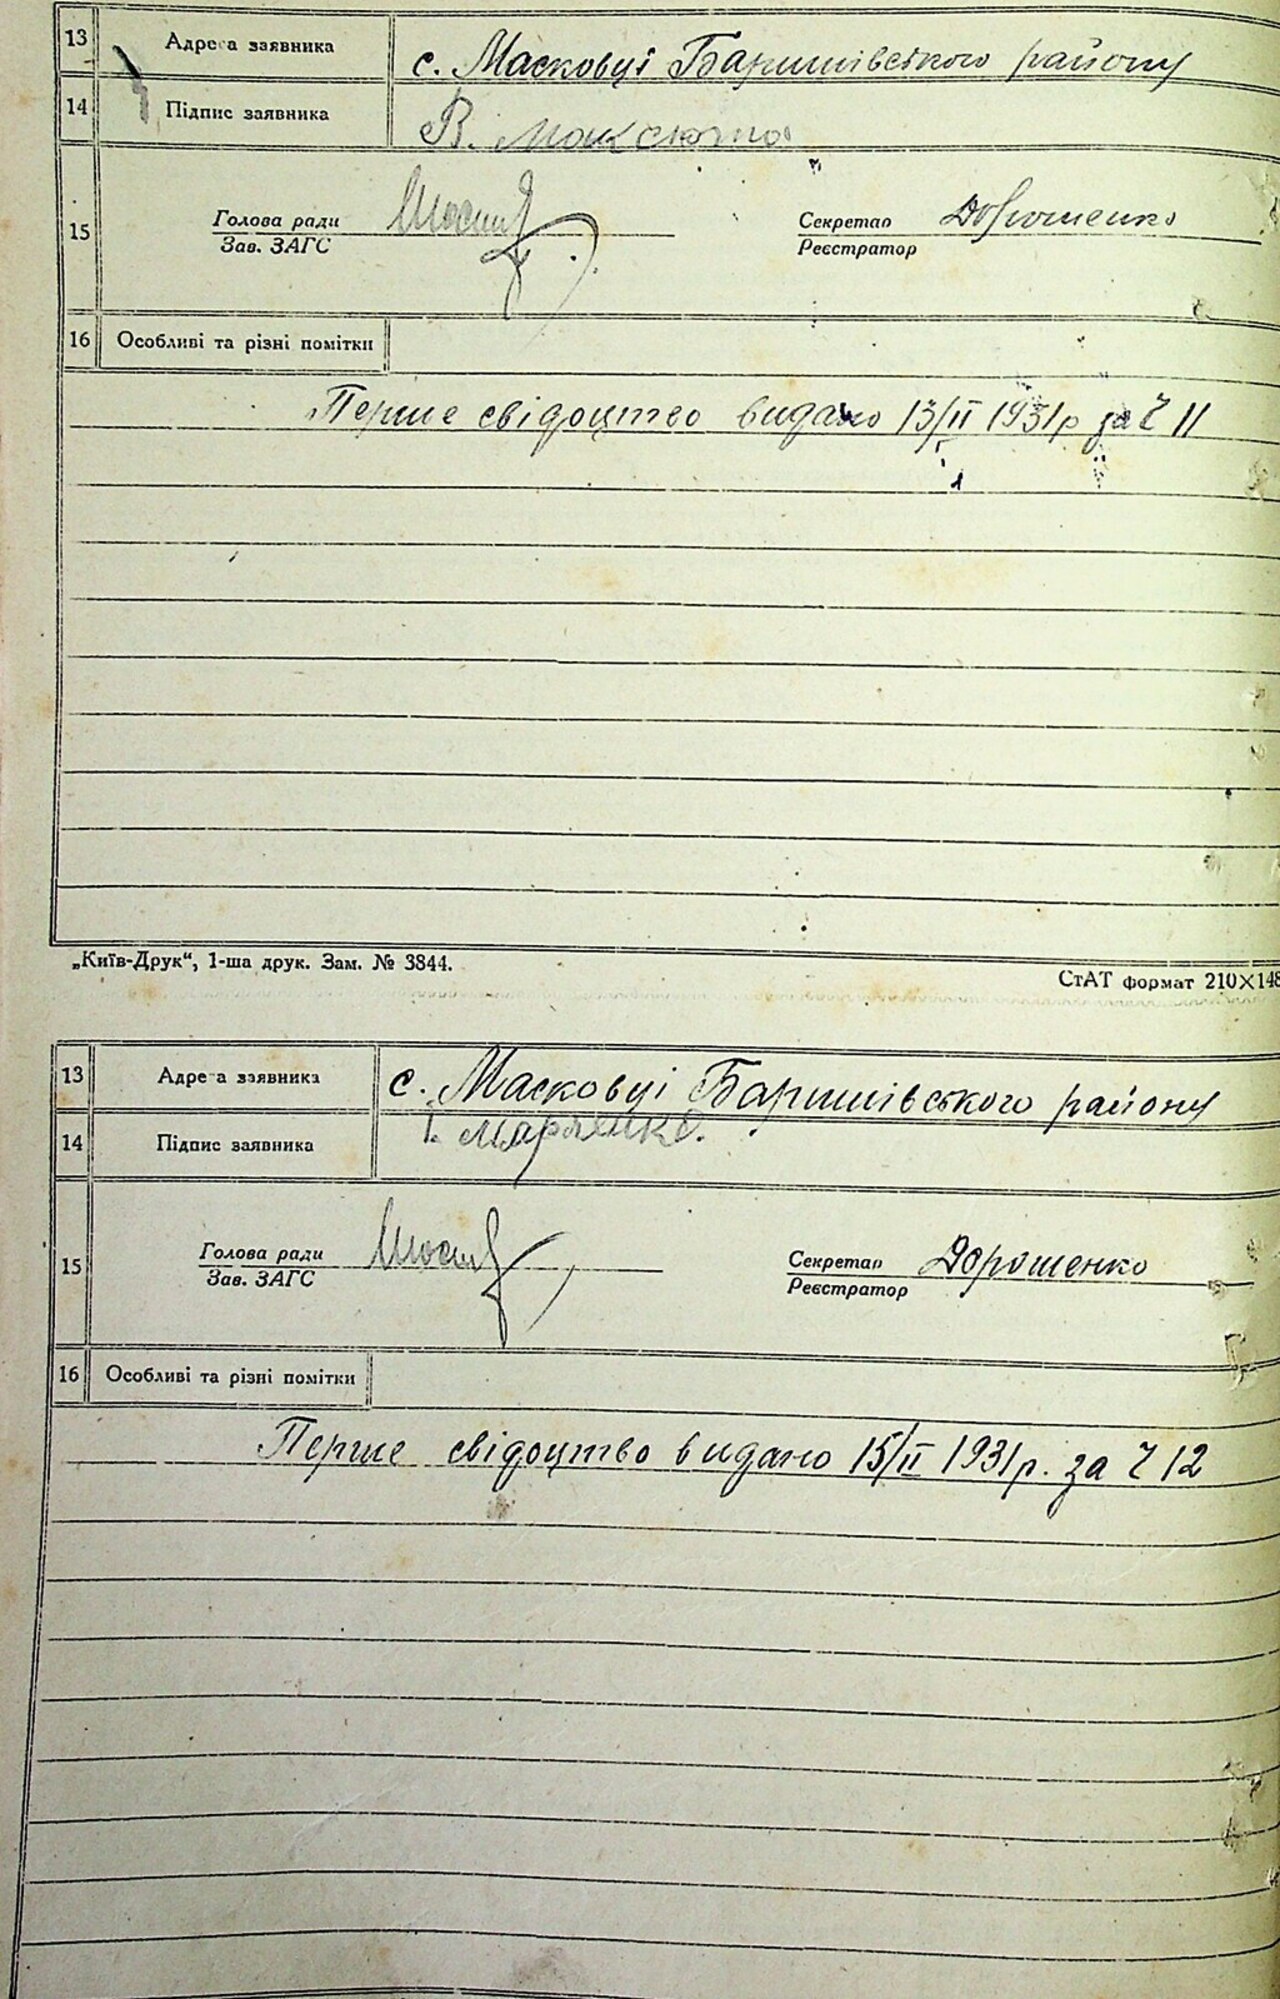 13 Адреса заявника с. Масковці Баришівського району
14 Підпис заявника В. Максюта
15 Голова ради Секретар Дорошенко
Зав. ЗАГС Реєстратор
16 Особливі та різні помітки
Перше свідоцтво видано 13/II 1931р за Ч 11
„Київ-Друк“, 1-ша друк. Зам. № 3844.
СтАТ формат 210×148
13 Адреса заявника с. Масковці Баришівського району
14 Підпис заявника І. Марченко.
15 Голова ради Секретар Дорошенко
Зав. ЗАГС Реєстратор
16 Особливі та різні помітки
Перше свідоцтво видано 15/II 1931р. за Ч 12